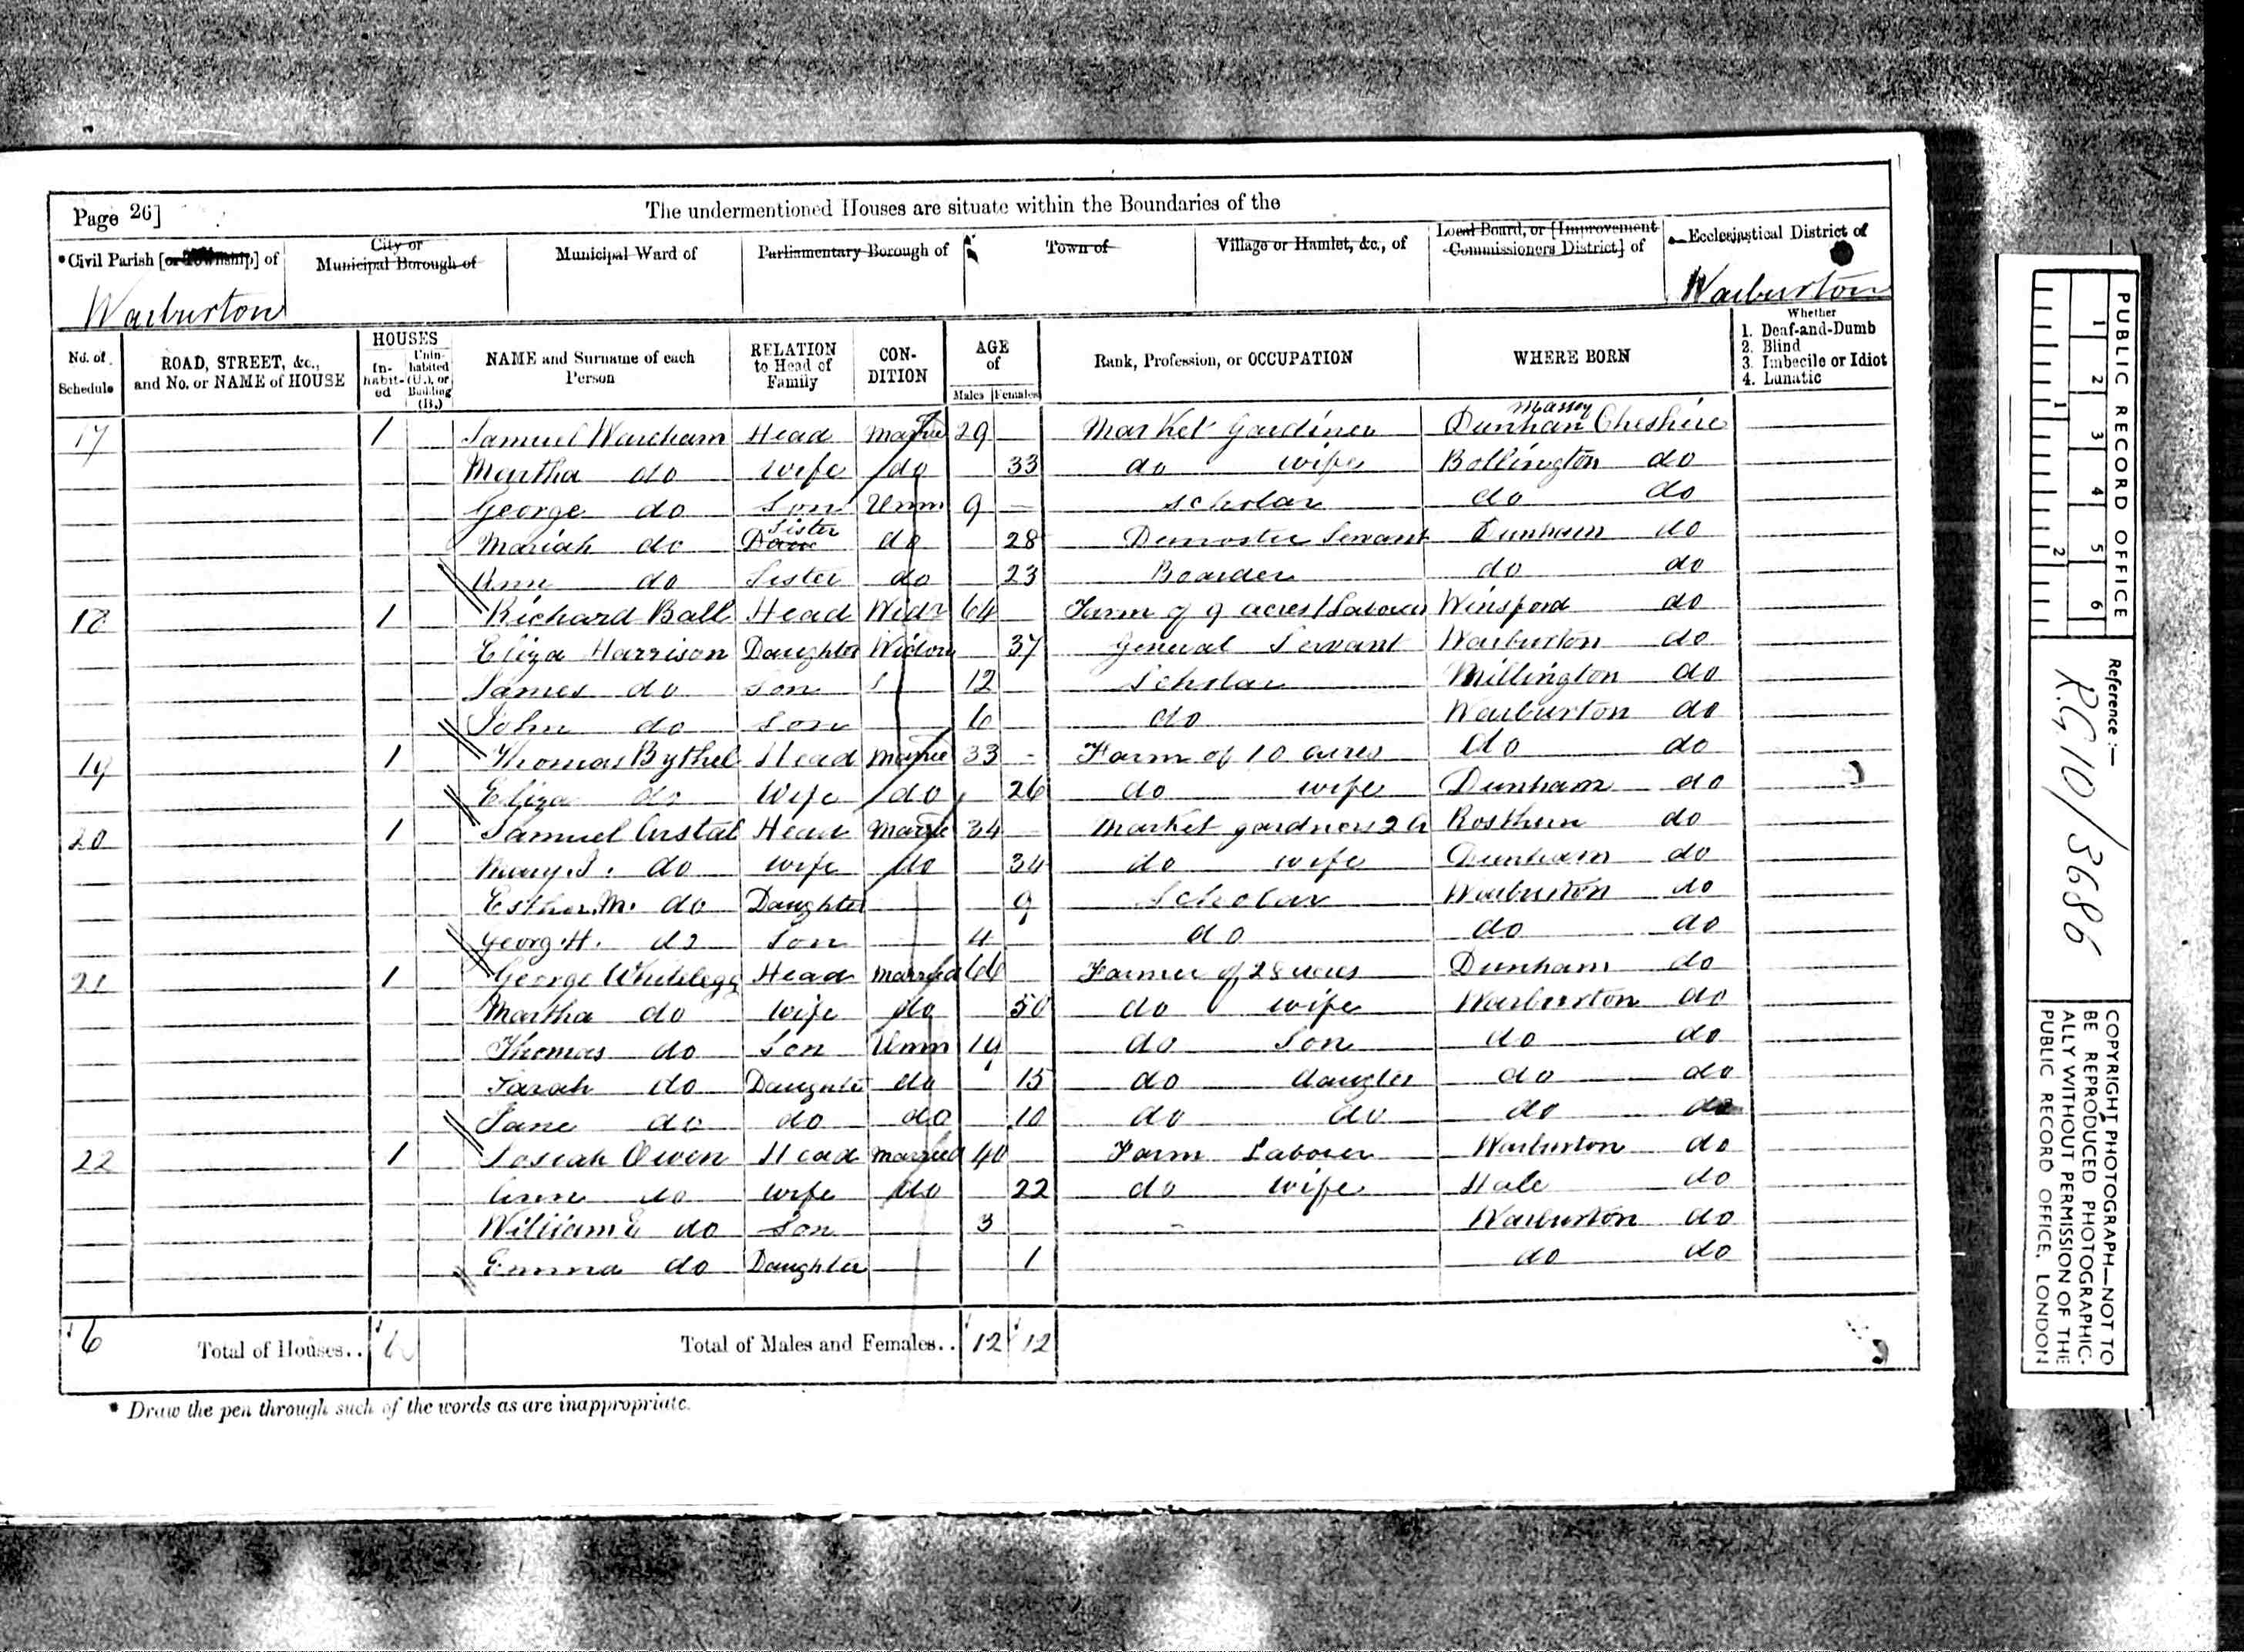 Page 26]
The undermentioned Houses are situate within the Boundaries of the
*Civil Parish [or Township] of City or Municipal Borough of Municipal Ward of Parliamentary Borough of Town of Village or Hamlet, &c., of Local Board, or [Improvement Commissioners District] of Ecclesiastical District of
Warburton Warburton
No. of Schedule ROAD, STREET, &c., and No. or NAME of HOUSE HOUSES In-habit-ed Unin-habited (U.), or Building (B.) NAME and Surname of each Person RELATION to Head of Family CON-DITION AGE of Males Females Rank, Profession, or OCCUPATION WHERE BORN Whether 1. Deaf-and-Dumb 2. Blind 3. Imbecile or Idiot 4. Lunatic
17 1 Samuel Warcham Head Marrie 29 Market Gardiner Dunham Massey Cheshire
Martha do Wife do 33 do wife Bollington do
George do Son Unm 9 scholar do do
Mariah do Sister do 28 Servant Dunham do
Ann do Sister do 23 Boarder do do
18 1 Richard Ball Head Widr 64 Farm of 9 acres Winsford do
Eliza Harrison Daughter Widow 37 General Servant Warburton do
James do Son 12 Scholar Millington do
John do Son 6 do Warburton do
19 1 Thomas Bythel Head Marrie 33 Farm of 10 acres do do
Eliza do Wife do 26 do wife Dunham do
20 1 Samuel Arstal Head Marrie 34 Market gardner 2 a Rosthern do
Mary J. do wife do 34 do wife Dunham do
Esther M. do Daughter 9 Scholar Warburton do
Georg H. do Son 4 do do do
21 1 George Whitelegg Head Married 66 Farmer of 28 acres Dunham do
Martha do wife do 50 do wife Warburton do
Thomas do Son Unm 19 do Son do do
Sarah do Daughter do 15 do daugter do do
Jane do do do 10 do do do do
22 1 Josiah Owen Head Married 40 Farm Laborer Warburton do
Ann do wife do 22 do wife Hale do
William E do Son 3 Warburton do
Emma do Daughter 1 do do
6 Total of Houses.. 6 Total of Males and Females.. 12 12
* Draw the pen through such of the words as are inappropriate.
PUBLIC RECORD OFFICE
1 2 3 4 5 6
1 2
Reference :—
R.G. 10/3686
COPYRIGHT PHOTOGRAPH—NOT TO
BE REPRODUCED PHOTOGRAPHIC-
ALLY WITHOUT PERMISSION OF THE
PUBLIC RECORD OFFICE, LONDON